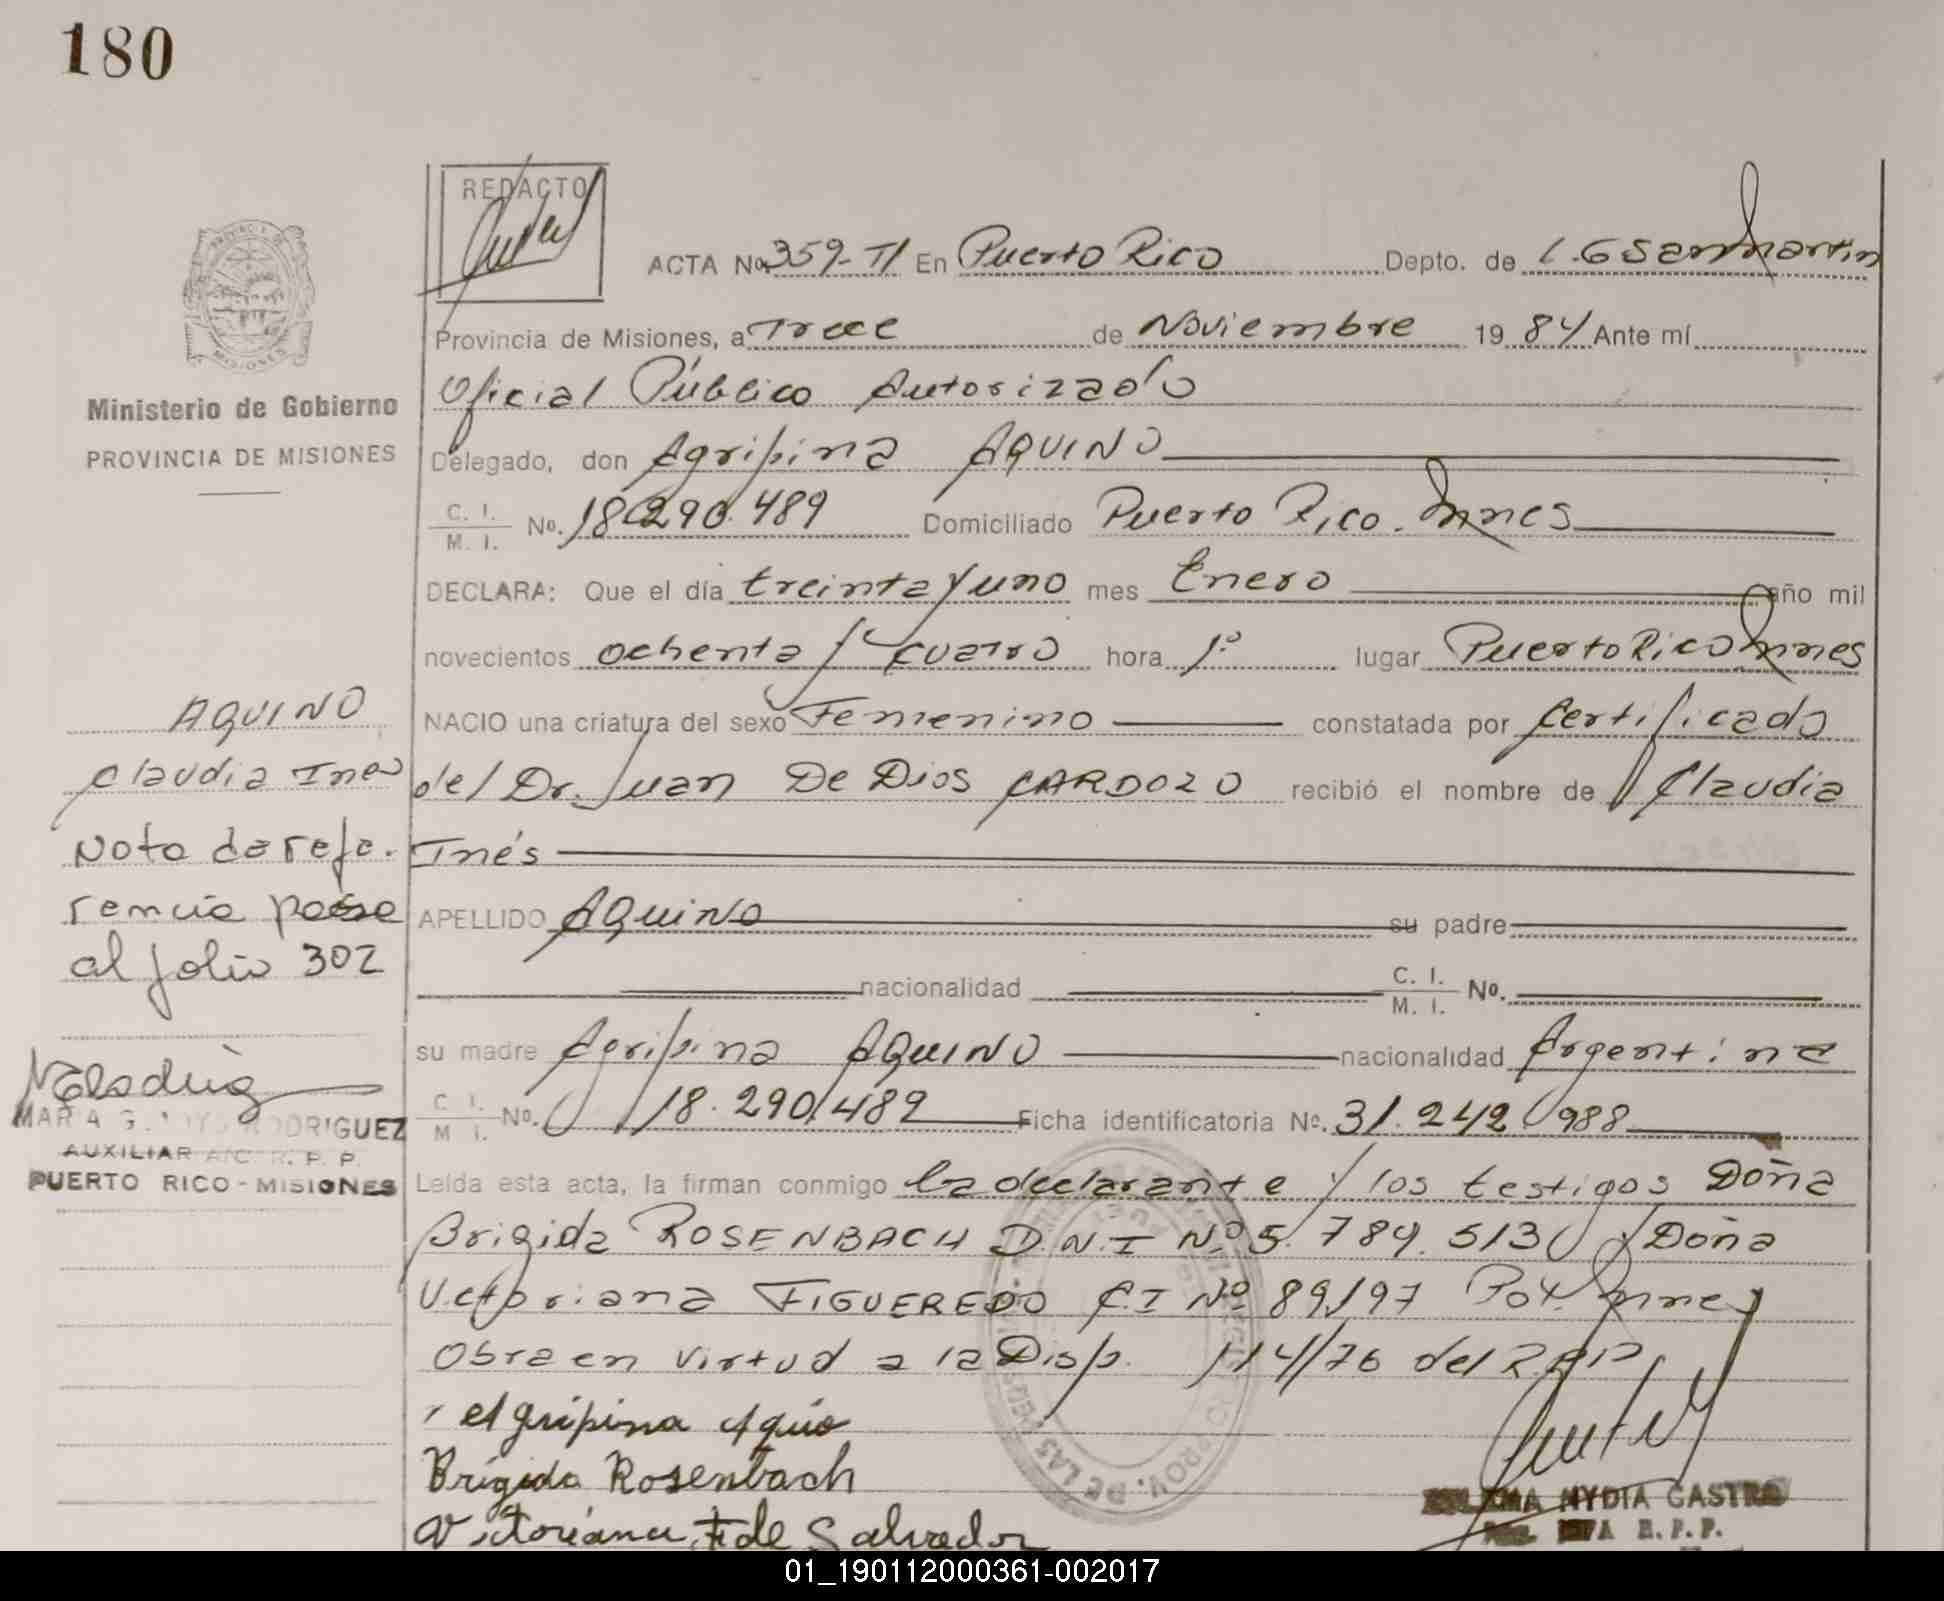 180
REDACTO
ACTA No. 359-TI En Puerto Rico Depto. de L.G San Martin
Provincia de Misiones, a Trece de Noviembre 1984 Ante mí
Oficial Público Autorizado
Ministerio de Gobierno
PROVINCIA DE MISIONES
Delegado, don Agripina AQUINO
C. I. / M. I. No. 18.290.489 Domiciliado Puerto Rico. Mnes
DECLARA: Que el día treinta y uno mes Enero año mil
novecientos ochenta y cuatro hora 1º lugar Puerto Rico Mnes
NACIO una criatura del sexo Femenino constatada por Certificado
del Dr. Juan De Dios CARDOZO recibió el nombre de Claudia
Inés
APELLIDO AQuiNo su padre
nacionalidad C. I. / M. I. No.
su madre Agripina AQuiNO nacionalidad Argentina
C. I. / M. I. No. 18.290.489 Ficha identificatoria No. 31.242.988
Leída esta acta, la firman conmigo la declarante y los testigos Doña
Brigida ROSENBACH D.N.I Nº 5.784.513 y Doña
Victoriana FIGUEREDO C.I Nº 89.197 Pol. Mnes
Obra en virtud a la Disp. 114/76 del R.P.P.
Agripina Aquio
Brígida Rosenbach
Victoriana F de Salvador
NYDIA CASTRO
R.P.P.
AQUINO
Claudia Ines
Nota de refe-
rencia pase
al folio 302
RODRIGUEZ
AUXILIAR A/C R. P. P.
PUERTO RICO - MISIONES
01_190112000361-002017